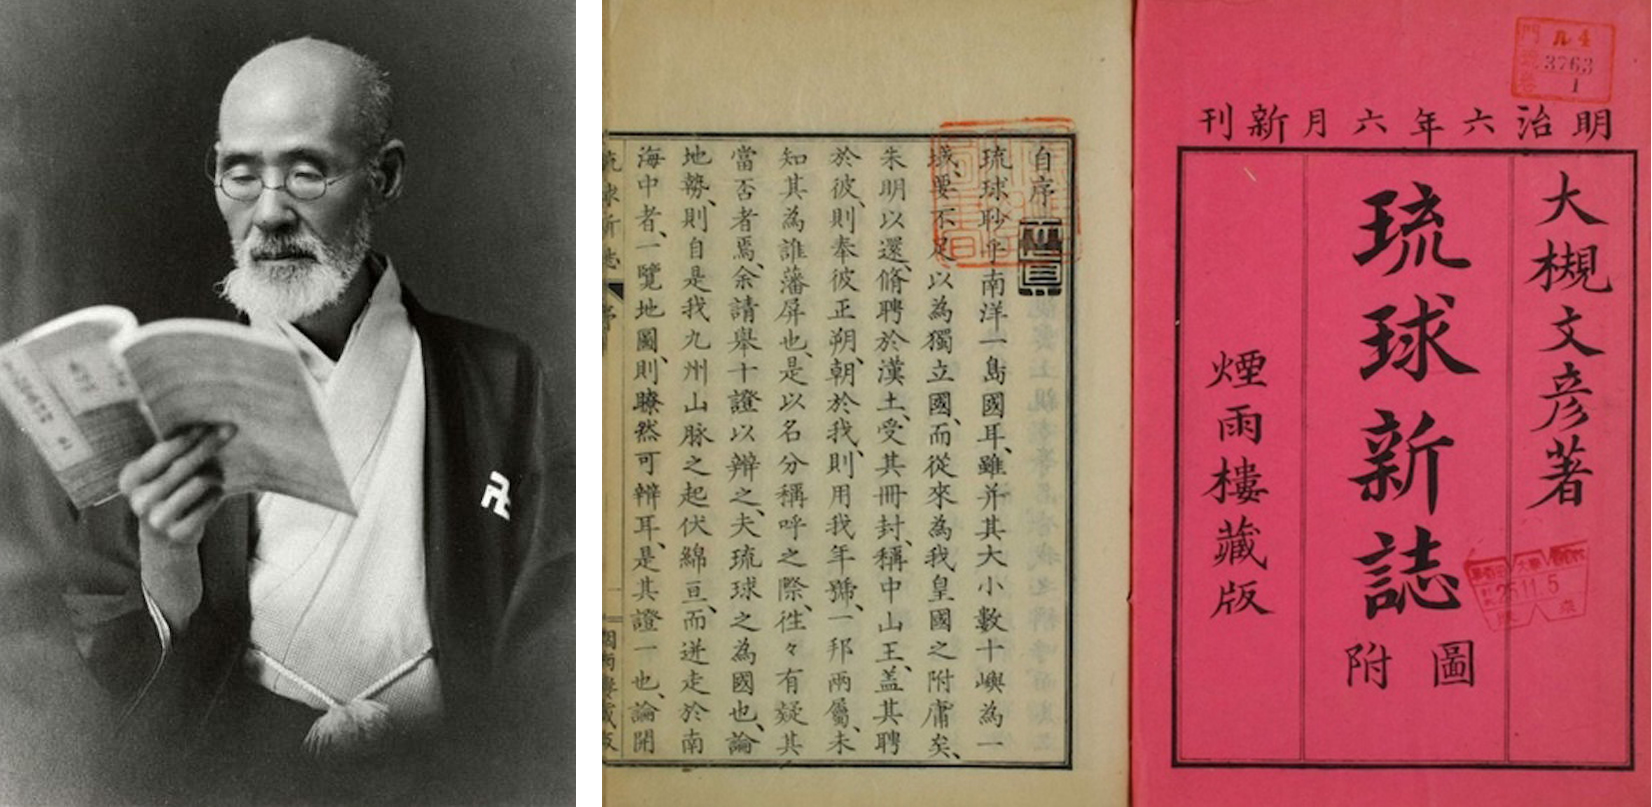 明治六年六月新刊
大槻文彦著
琉球新誌
圖附
煙雨樓藏版
ル4
3763
1
25.11.5
自序
琉球眇乎南洋一島國耳、雖并其大小數十嶼為一
域、要不足以為獨立國、而從來為我皇國之附庸矣、
朱明以還、脩聘於漢土、受其冊封、稱中山王、蓋其聘
於彼、則奉彼正朔、朝於我、則用我年號、一邦兩屬、未
知其為誰藩屏也、是以名分稱呼之際、徃々有疑其
當否者焉、余請舉十證以辯之、夫琉球之為國也、論
地勢、則自是我九州山脉之起伏綿亘、而迸走於南
海中者、一覽地圖、則瞭然可辯耳、是其證一也、論開